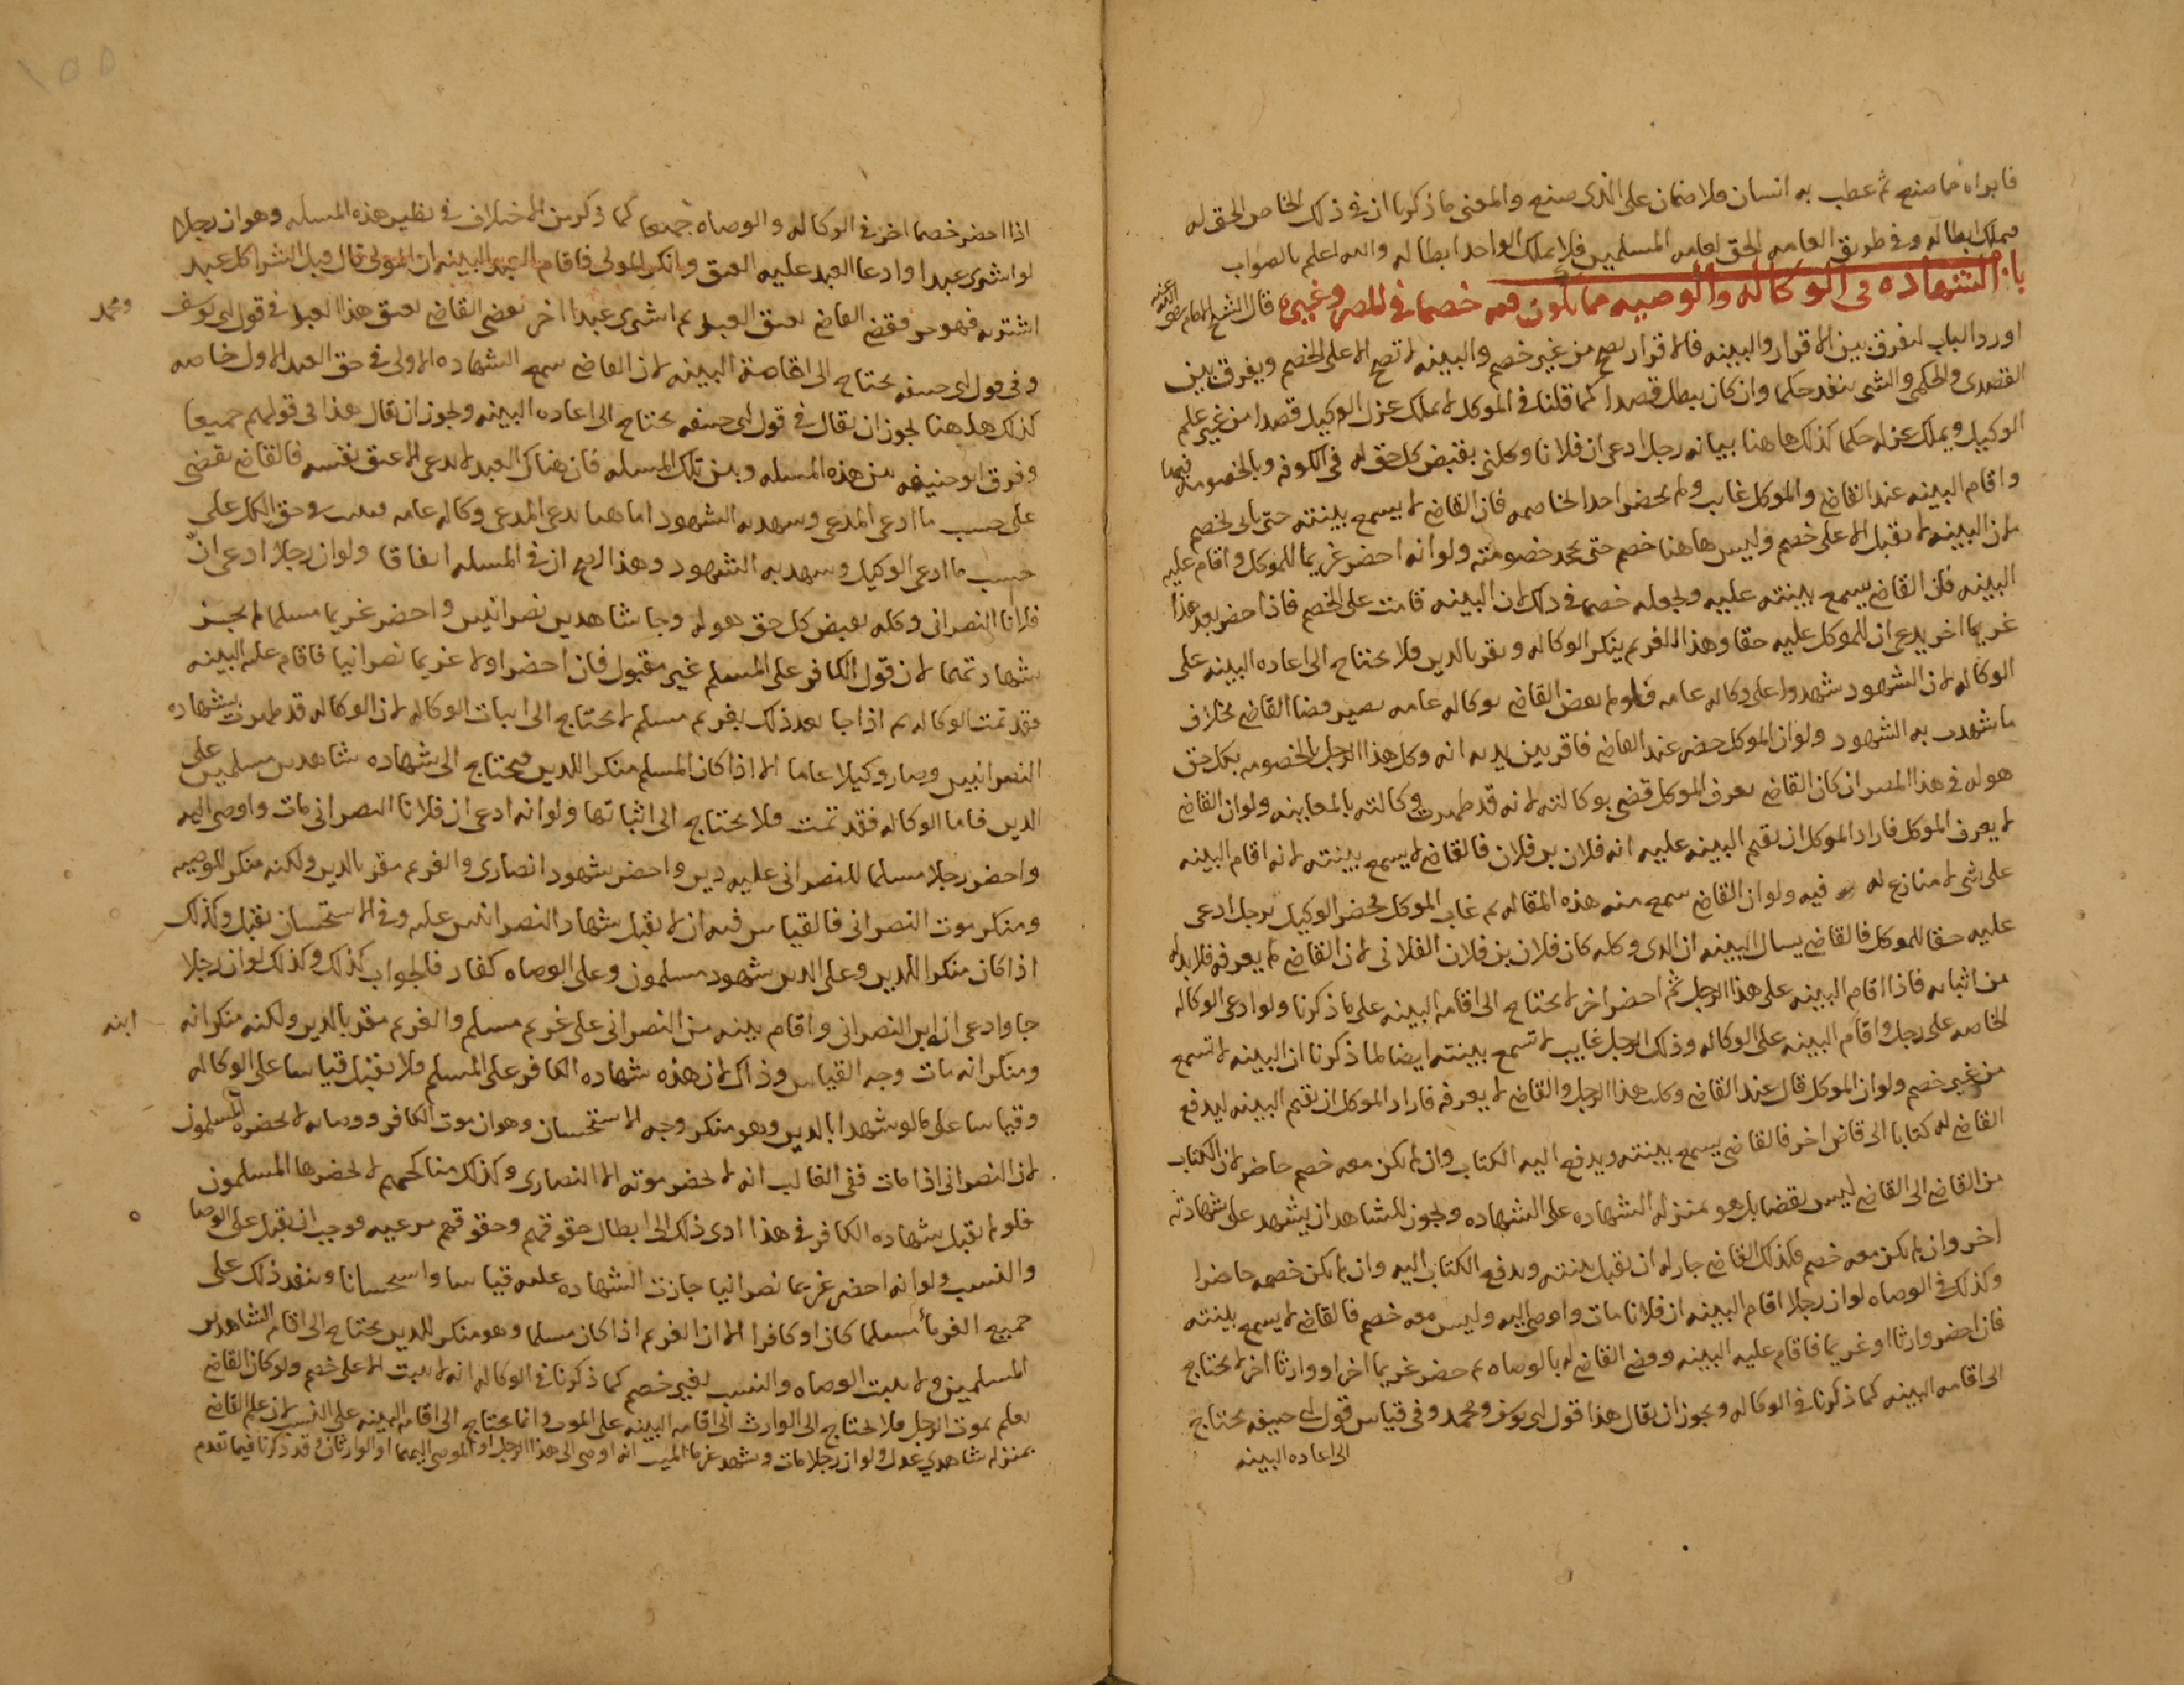 فابراه مما صنع ثم عطب به انسان فلا ضمان على الذى صنع والمعنى ما ذكرنا ان فى ذلك الخاص الحق له
فيملك ابطاله وفى طريق العامه الحق لعامه المسلمين فلا يملك الواحد ابطاله والله اعلم بالصواب
باب الشهاده فى الوكاله والوصيه مما يكون فيه خصما فى المصر وغيره قال الشيخ الامام رضى الله عنه
اورد الباب لفرق بين الاقرار والبينه فالاقرار يصح من غير خصم والبينه لا تصح الا على الخصم ويفرق بين
القصدى والحكمى والشى ينفد حكما وان كان يبطل قصدا كما قلنا فى الموكل لا يملك عزل الوكيل قصدا من غير علم
الوكيل ويملك عزله حكما كذلك هاهنا بيانه رجل ادعى ان فلانا وكلنى بقبض كل حق له فى الكوفه وبالخصومه فيها
واقام البينه عند القاضى والموكل غايب ولم يحضر احدا لخاصمه فان القاضى لا يسمع بينته حتى ياتى بخصم
لان البينه لا تقبل الا على خصم وليس هاهنا خصم حتى يجحد خصومته ولو انه احضر غريما للموكل واقام عليه
البينه فان القاضى يسمع بينته عليه ويجعله خصما فى ذلك لان البينه قامت على الخصم فاذا احضر بعد هذا
غريما اخر يدعى ان للموكل عليه حقا وهذا الغريم ينكر الوكاله ويقر بالدين فلا يحتاج الى اعاده البينه على
الوكاله لان الشهود شهدوا على وكاله عامه فلو لم يقض القاضى بوكاله عامه يصير قضا القاضى بخلاف
ما شهدت به الشهود ولو ان الموكل حضر عند القاضى فاقر بين يديه انه وكل هذا الرجل بالخصومه بكل حق
هو له فى هذا المصر ان كان القاضى يعرف الموكل قضى بوكالته لانه قد ظهرت وكالته بالمعاينه ولو ان القاضى
لا يعرف الموكل فاراد الموكل ان يقيم البينه عليه انه فلان بن فلان فالقاضى لا يسمع بينته لانه اقام البينه
على شى لا منازع له فيه ولو ان القاضى سمع منه هذه المقاله ثم غاب الموكل فحضر الوكيل برجل ادعى
عليه حقا للموكل فالقاضى يسال البينه ان الذى وكله كان فلان بن فلان الفلانى لان القاضى لم يعرفه فلا بد له
من اثباته فاذا اقام البينه على هذا الرجل ثم احضر اخر لا يحتاج الى اقامه البينه على ما ذكرنا ولو ادعى الوكاله
الخاصه على رجل واقام البينه على الوكاله وذلك الرجل غايب لا تسمع بينته ايضا لما ذكرنا ان البينه لا تسمع
من غير خصم ولو ان الموكل قال عند القاضى وكلت هذا الرجل والقاضى لا يعرفه فاراد الموكل ان يقيم البينه ليدفع
القاضى له كتابا الى قاض اخر فالقاضى يسمع بينته ويدفع اليه الكتاب وان لم يكن معه خصم حاضر لان الكتاب
من القاضى الى القاضى ليس بقضا بل هو بمنزله الشهاده على الشهاده ويجوز للشاهد ان يشهد على شهادته
اخر وان لم يكن معه خصم فكذلك القاضى جاز له ان يقبل بينته ويدفع الكتاب اليه وان لم يكن خصمه حاضرا
وكذلك فى الوصاه لو ان رجلا اقام البينه ان فلانا مات واوصى اليه وليس معه خصم فالقاضى لا يسمع بينته
فان احضر وارثا او غريما فاقام عليه البينه وقضى القاضى له بالوصاه ثم حضر غريما اخر او وارثا اخر لا يحتاج
الى اقامه البينه كما ذكرنا فى الوكاله ويجوز ان يقال هذا قول ابى يوسف ومحمد وفى قياس قول ابى حنيفه يحتاج
الى اعاده البينه
١٥٥
اذا احضر خصما اخر فى الوكاله والوصاه جميعا كما ذكر من الاختلاف فى نظير هذه المسله وهو ان رجلا
لو اشترى عبدا وادعا العبد عليه العتق وانكر المولى فاقام العبد البينه ان المولى قال قبل الشرا كل عبد
اشتريه فهو حر فقضى القاضى بعتق العبد ثم اشترى عبدا اخر يقضى القاضى بعتق هذا العبد فى قول ابى يوسف ومحمد
وفى قول ابى حنيفه يحتاج الى اقامة البينه لان القاضى سمع الشهاده الاولى فى حق العبد الاول خاصه
كذلك هاهنا يجوز ان يقال فى قول ابى حنيفه يحتاج الى اعاده البينه ويجوز ان يقال هذا فى قولهم جميعا
وفرق ابو حنيفه بين هذه المسله وبين تلك المسله فان هناك العبد لا يدعى الا عتق نفسه فالقاضى يقضى
على حسب ما ادعى المدعى وشهد به الشهود اما هاهنا يدعى المدعى وكاله عامه فتثبت فى حق الكل على
حسب ما ادعى الوكيل وشهد به الشهود وهذا اصح ان فى المسله اتفاقا ولو ان رجلا ادعى ان
فلانا النصرانى وكله بقبض كل حق هو له وجا شاهدين نصرانيين واحضر غريما مسلما لم يجز
شهادتهما لان قول الكافر على المسلم غير مقبول فان احضر اولا غريما نصرانيا فاقام عليه البينه
فقد تمت الوكاله ثم اذا جا بعد ذلك بغريم مسلم لا يحتاج الى اثبات الوكاله لان الوكاله قد ظهرت بشهاده
النصرانيين وصار وكيلا عاما الا اذا كان المسلم منكرا للدين فيحتاج الى شهاده شاهدين مسلمين على
الدين فاما الوكاله فقد تمت فلا يحتاج الى اثباتها ولو انه ادعى ان فلانا النصرانى مات واوصى اليه
واحضر رجلا مسلما للنصرانى عليه دين واحضر شهود انصارى والغريم مقر بالدين ولكنه منكر للوصيه
ومنكر موت النصرانى فالقياس فيه ان لا يقبل شهاد النصرانيين عليه وفى الاستحسان يقبل وكذلك
اذا كان منكرا للدين وعلى الدين شهود مسلمون وعلى الوصاه كفار فالجواب كذلك وكذلك لو ان رجلا
جا وادعى ان ابن النصرانى واقام بينه من النصرانى على غريم مسلم والغريم مقر بالدين ولكنه منكر انه ابنه
ومنكر انه مات وجه القياس وذاك لان هذه شهاده الكافر على المسلم فلا يقبل قياسا على الوكاله
وقياسا على ما لو شهدا بالدين وهو منكر وجه الاستحسان وهو ان موت الكافر ووصاته لا يحضره المسلمون
لان النصرانى اذا مات ففى الغالب انه لا يحضر موته الا النصارى وكذلك مناكحتهم لا يحضرها المسلمون
فلو لم تقبل شهاده الكافر فى هذا ادى ذلك الى ابطال حقوقهم وحقوقهم مرعيه فوجب ان يقبل على الوصا
والنسب ولو انه احضر غريما نصرانيا جازت الشهاده عليه قياسا واستحسانا وينفد ذلك على
جميع الغرماء مسلما كان او كافرا الا ان الغريم اذا كان مسلما وهو منكر للدين يحتاج الى اقام الشاهدين
المسلمين ولا يثبت الوصاه والنسب بغير خصم كما ذكرنا فى الوكاله انه لا يثبت الا على خصم ولو كان القاضى
يعلم بموت الرجل فلا يحتاج الى الوارث الى اقامه البينه على الموت وانما يحتاج الى اقامه البينه على النسب لان علم القاضى
بمنزله شاهدي عدل ولو ان رجلا مات وشهد غرما الميت انه اوصى الى هذا الرجل او الموصى اليهما او الوارثان وقد ذكرنا فيما تقدم